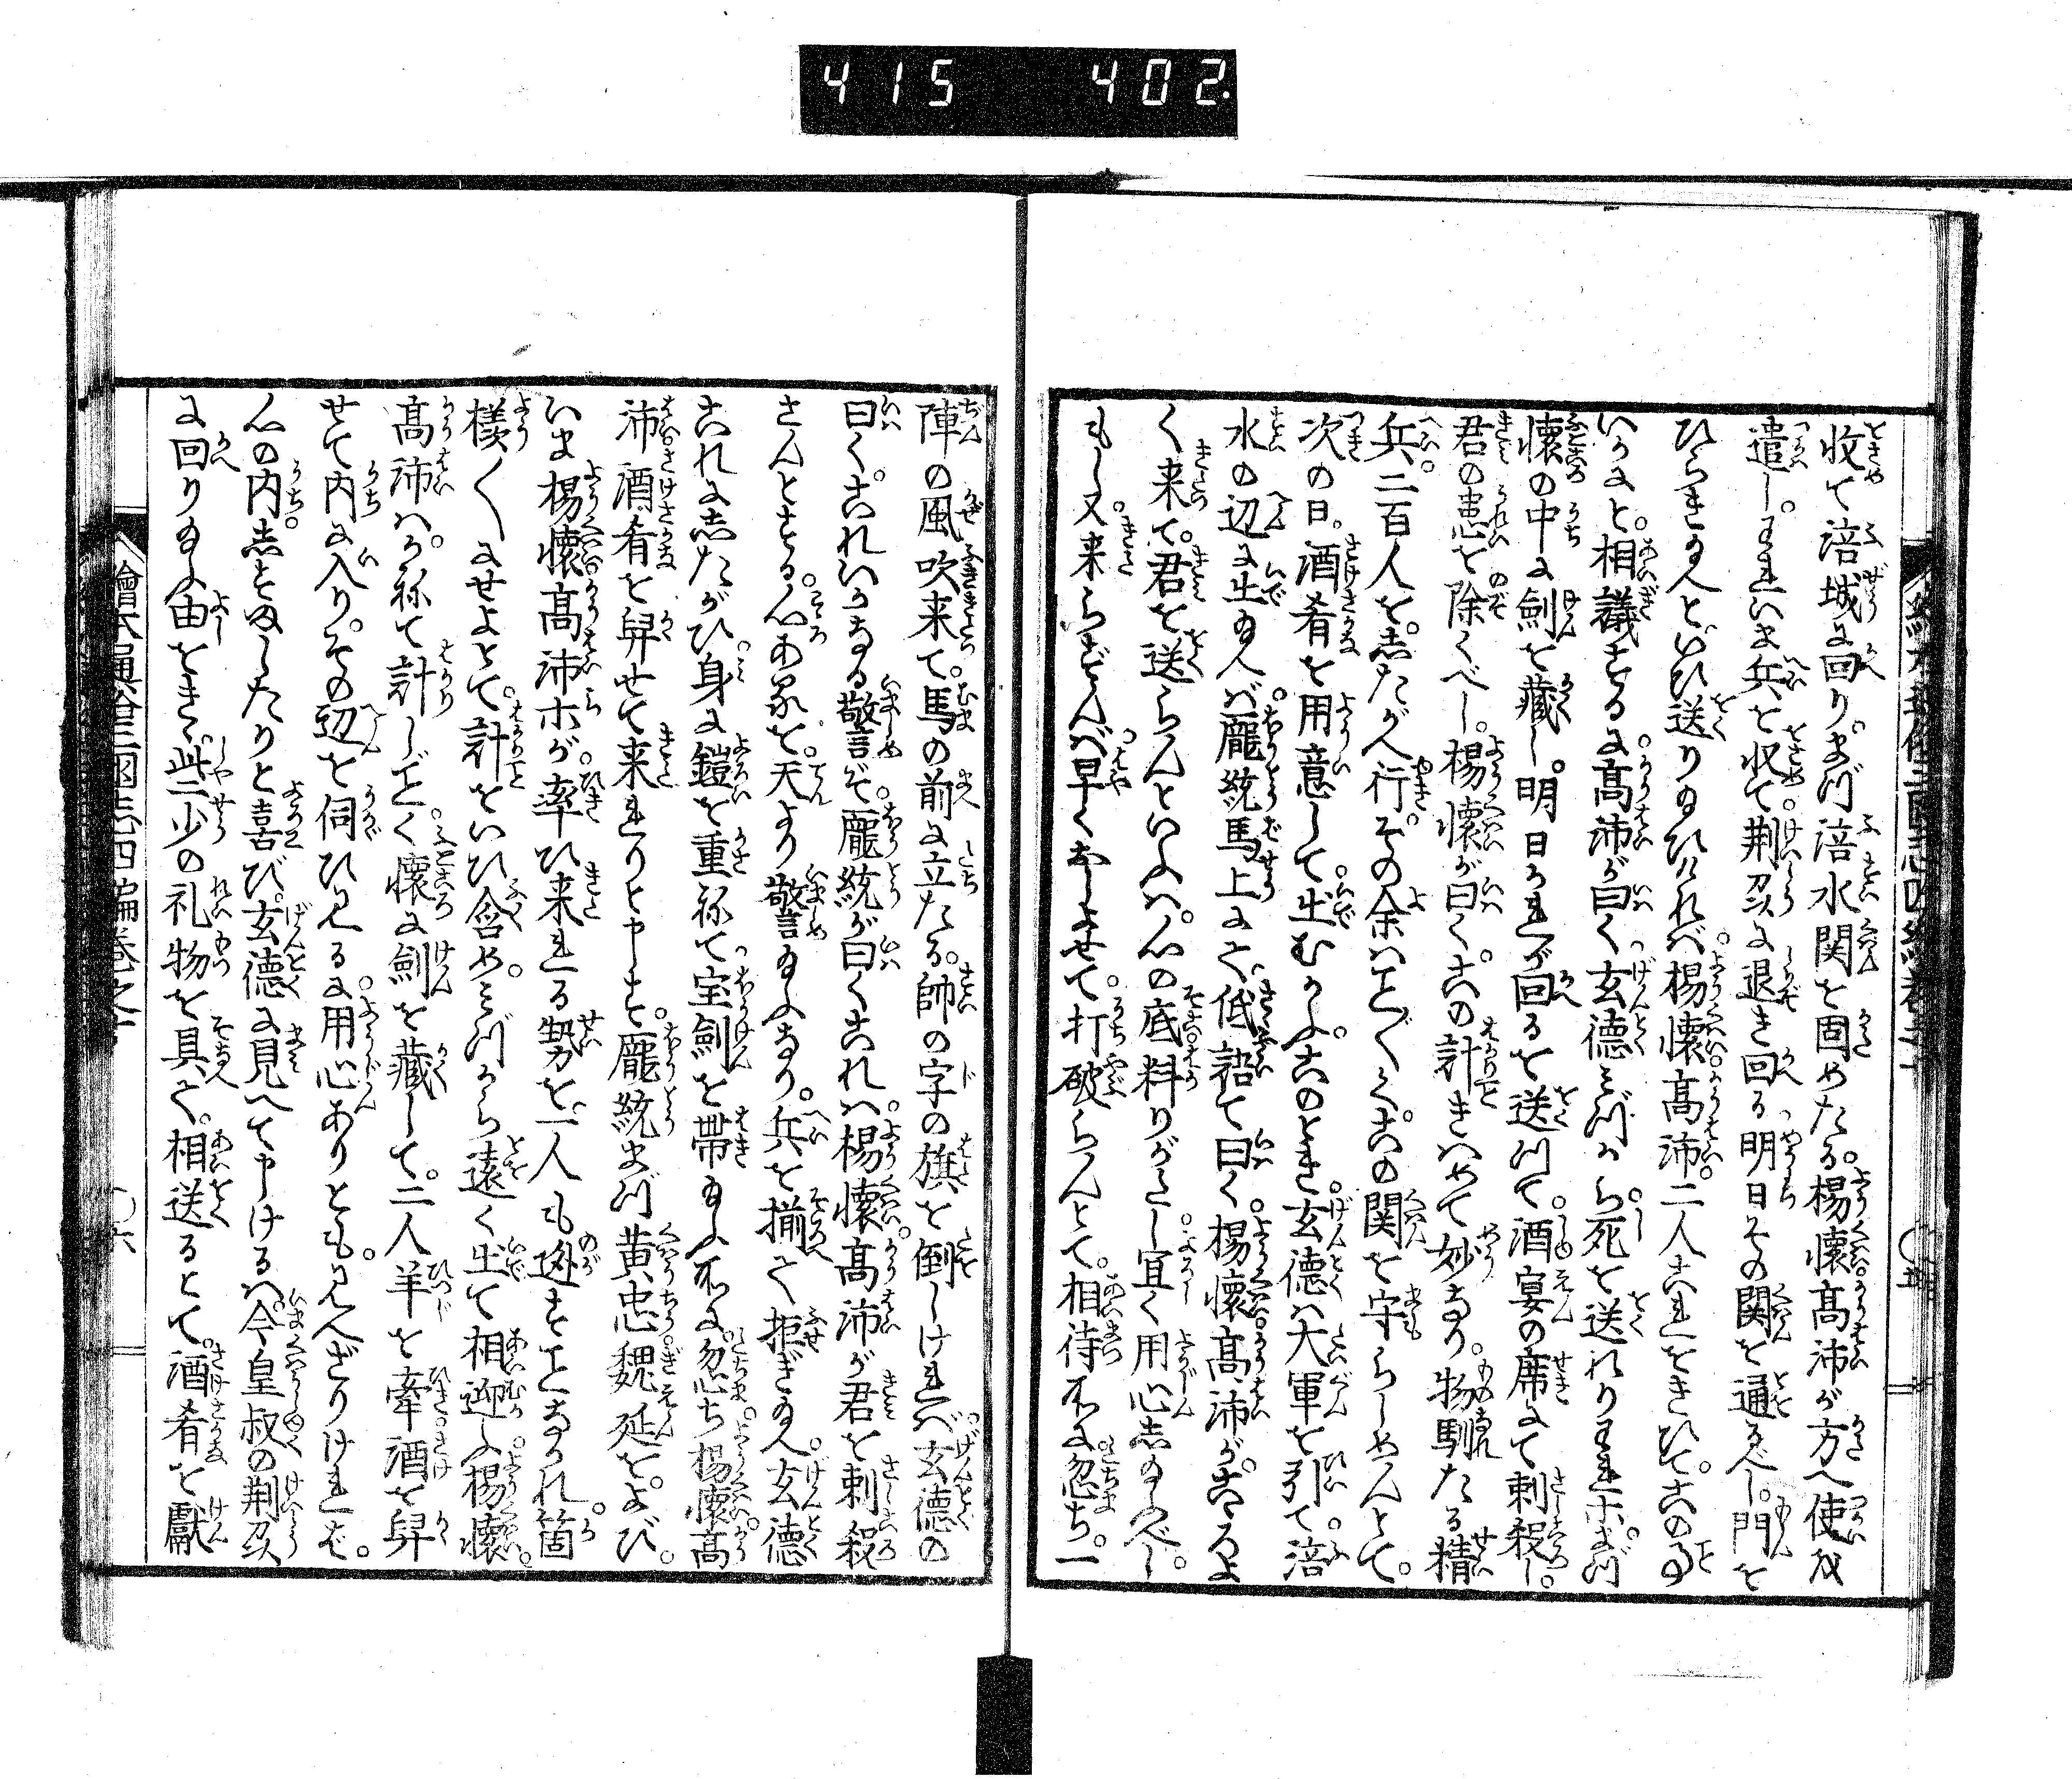 415 402.
収て涪城に回り。まづ涪水関を固めたる。楊懐高沛が方へ使を
遣し。われいま兵を収て荊州に退き回る明日その関を通るべし。門を
ひらき給へといひ送り給ひければ。楊懐高沛。二人これをきひて。この事
いかにと。相議するに。高沛が曰く玄徳みづから。死を送れりわれホ。まづ
懐の中に劍を藏し。明日われが回るを送つて。酒宴の席にて刺殺し。
君の患を除くべし。楊懐が曰く。この計きはめて妙なり。物馴たる精
兵。二百人を。したがへ行。その余はこと〴〵く。この関を守らしめんとて。
次の日。酒肴を用意して。出むかふ。このとき。玄徳は大軍を引て。涪
水の辺に出給へば。龐統馬上にて。低語て曰く。楊懐。高沛が。こころよ
く来て。君を送らんといふは。心の底料りがたし。宜く用心し給べし。
もし又。来らずんば。早くおしよせて。打破らんとて。相待所に。忽ち。一
陣の風吹来て。馬の前に立たる。帥の字の旗を倒しければ。玄徳の
曰く。これいかなる警ぞ。龐統が曰くこれは。楊懐。高沛が君を刺殺
さんとする。心あるを。天より警給ふなり。兵を揃て拒ぎ給へ。玄徳
これにしたがひ。身に鎧を重ねて宝劍を帯給ふ所に。忽ち楊懐。高
沛。酒肴を舁せて来れりと申す。龐統まづ黄忠魏延を。よび。
いま楊懐。高沛ホが。率ひ来れる勢を。一人も逃すことなかれ。箇
様〳〵にせよとて。計をいひ含め。みづから遠く出て相迎ふ。楊懐。
高沛は。かねて計しごとく。懐に劍を藏して。二人羊を牽。酒を舁
せて内に入り。その辺を伺ひ見るに。用心ありとも。見へざりければ。
心の内。しすましたりと喜び。玄徳に見へて申けるは。今皇叔の荊州
に回り給ふ由をきゝ。些少の礼物を具て。相送るとて。酒肴を獻